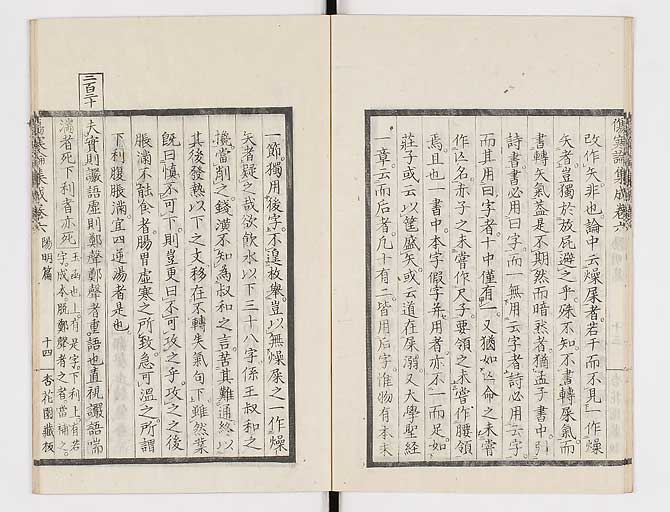 傷寒論集成卷六
改作矢非也論中云燥屎者若干而不見一作燥
矢者豈獨於放屁避之乎殊不知不書轉屎氣而
書轉矢氣蓋是不期然而暗契者猶孟子書中引
詩書書必用曰字而一無用云字者詩必用云字
而其用曰字者十中僅有一又猶如亡命之未嘗
作亾名赤子之未嘗作尺子要領之未嘗作腰領
焉且也一書中本字假字并用者亦不一而足如
莊子或云以筐盛矢或云道在屎溺又大學聖經
一章云而后者凡十有二皆用后字惟物有本末
一節獨用後字不遑枚舉豈以無燥屎之一作燥
矢者疑之哉欲飲水以下三十八字係王叔和之
攙當削之錢潢不知爲叔和之言苦其難通終以
其後發熱以下之文移在不轉失氣句下雖然業
既曰慎不可下則豈更曰不可攻之乎攻之之後
脹滿不能食者腸胃虛寒之所致急可溫之所謂
下利腹脹滿宜四逆湯者是也
三百二十
夫實則讝語虛則鄭聲鄭聲者重語也直視讝語喘
滿者死下利者亦死 玉函也上有是字下利上有若字成本脫鄭聲者之者當補之
傷寒論集成卷六 陽明篇 十四 杏花園藏板